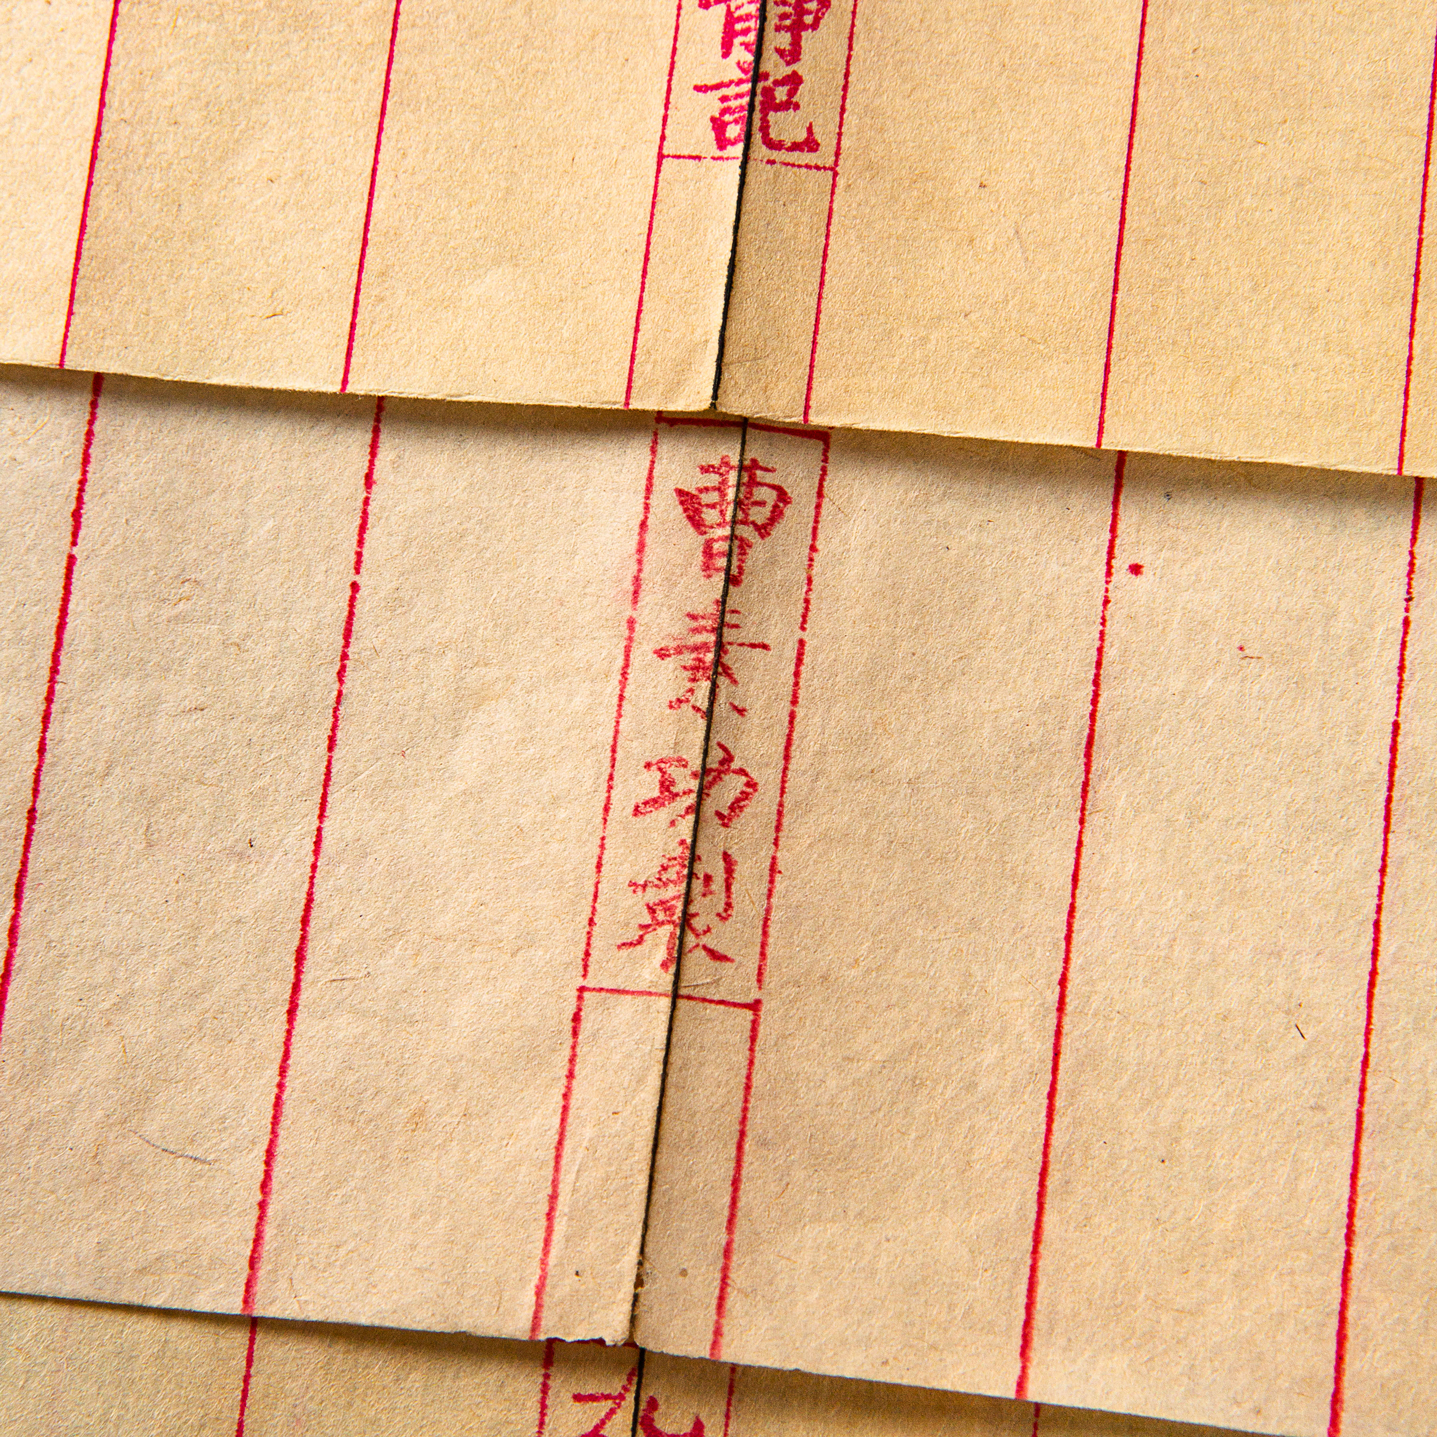 靜記
曹素功製